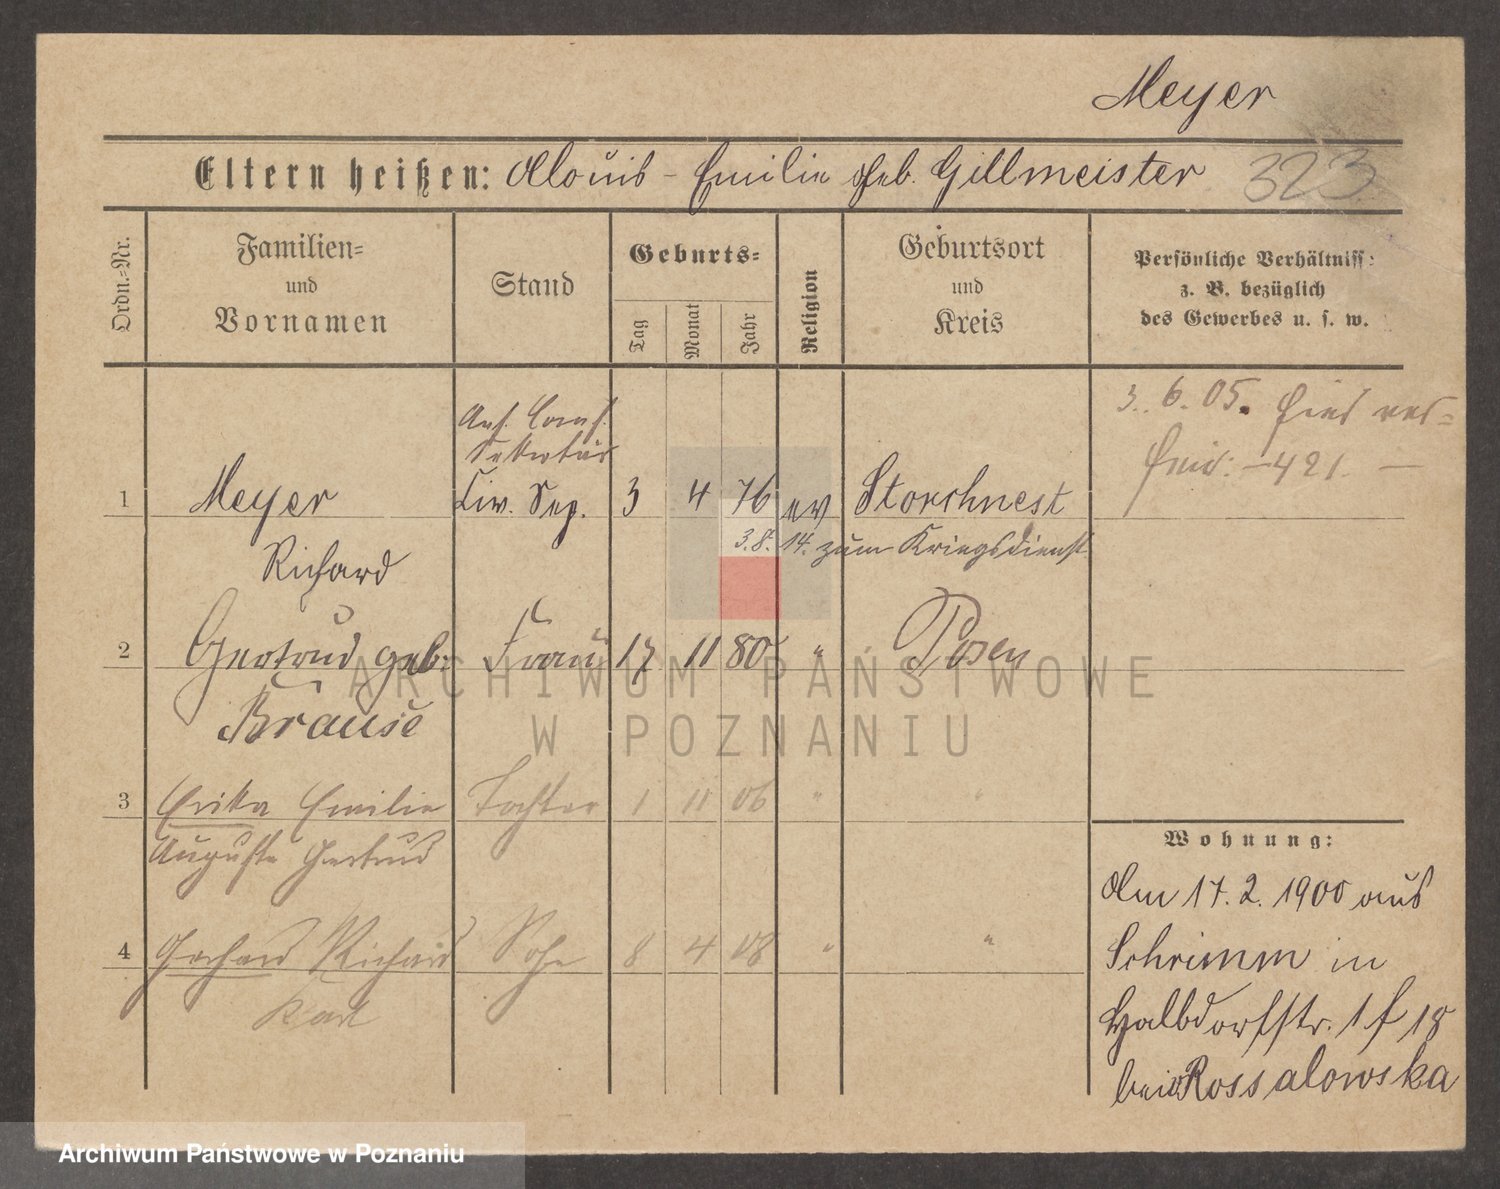 Meyer
Eltern heißen: Alouis - Emilie geb. Gillmeister 323
Ordn.-Nr.
Familien-
und
Vornamen
Stand
Geburts-
Tag
Monat
Jahr
Religion
Geburtsort
und
Kreis
Persönliche Verhältniss:
z. B. bezüglich
des Gewerbes u. s. w.
3. 6. 05. hier ver-
heir: - 421. -
Sekretär
1 Meyer Civ. Sup. 3 4 76 ev Storchnest
3.8. 14. zum Kriegsdienst
Richard
2 Gertrud geb. Frau 17 11 80 " Posen
Krause
3 Erika Emilie Tochter 1 11 06 " "
Auguste Gertrud
4 Gerhard Richard Sohn 8 4 08 " "
Karl
Wohnung:
Am 17. 2. 1900 aus
Schrimm in
Halbdorfstr. 1 f 18
bei Rossalowska
ARCHIWUM PAŃSTWOWE
W POZNANIU
Archiwum Państwowe w Poznaniu